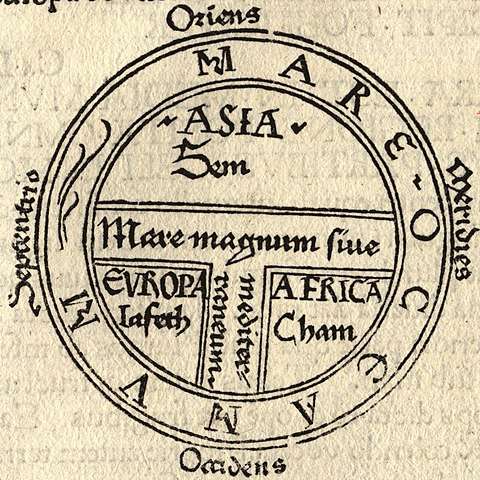 Oriens
MARE OCCEANVM
ASIA
Sem
Septentrio
Meridies
Mare magnum siue
mediter
raneum
EVROPA
Iafeth
AFRICA
Cham
Occidens